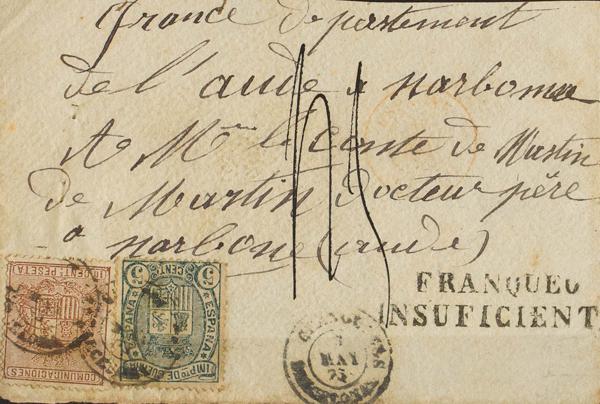 France departement
de l'aude a narbonne
A Mr le conte de Martin
de Martin Docteur père
a narbone (aude)
FRANQUEO
INSUFICIENT
CENT. PESETA
COMUNICACIONES
5 CENTs 5
ESPAÑA
ESPAÑA
IMPTO DE GUERRA
MAY
75